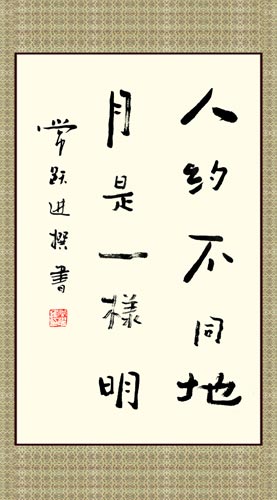 人約不同地
月是一樣明
常跃进撰書